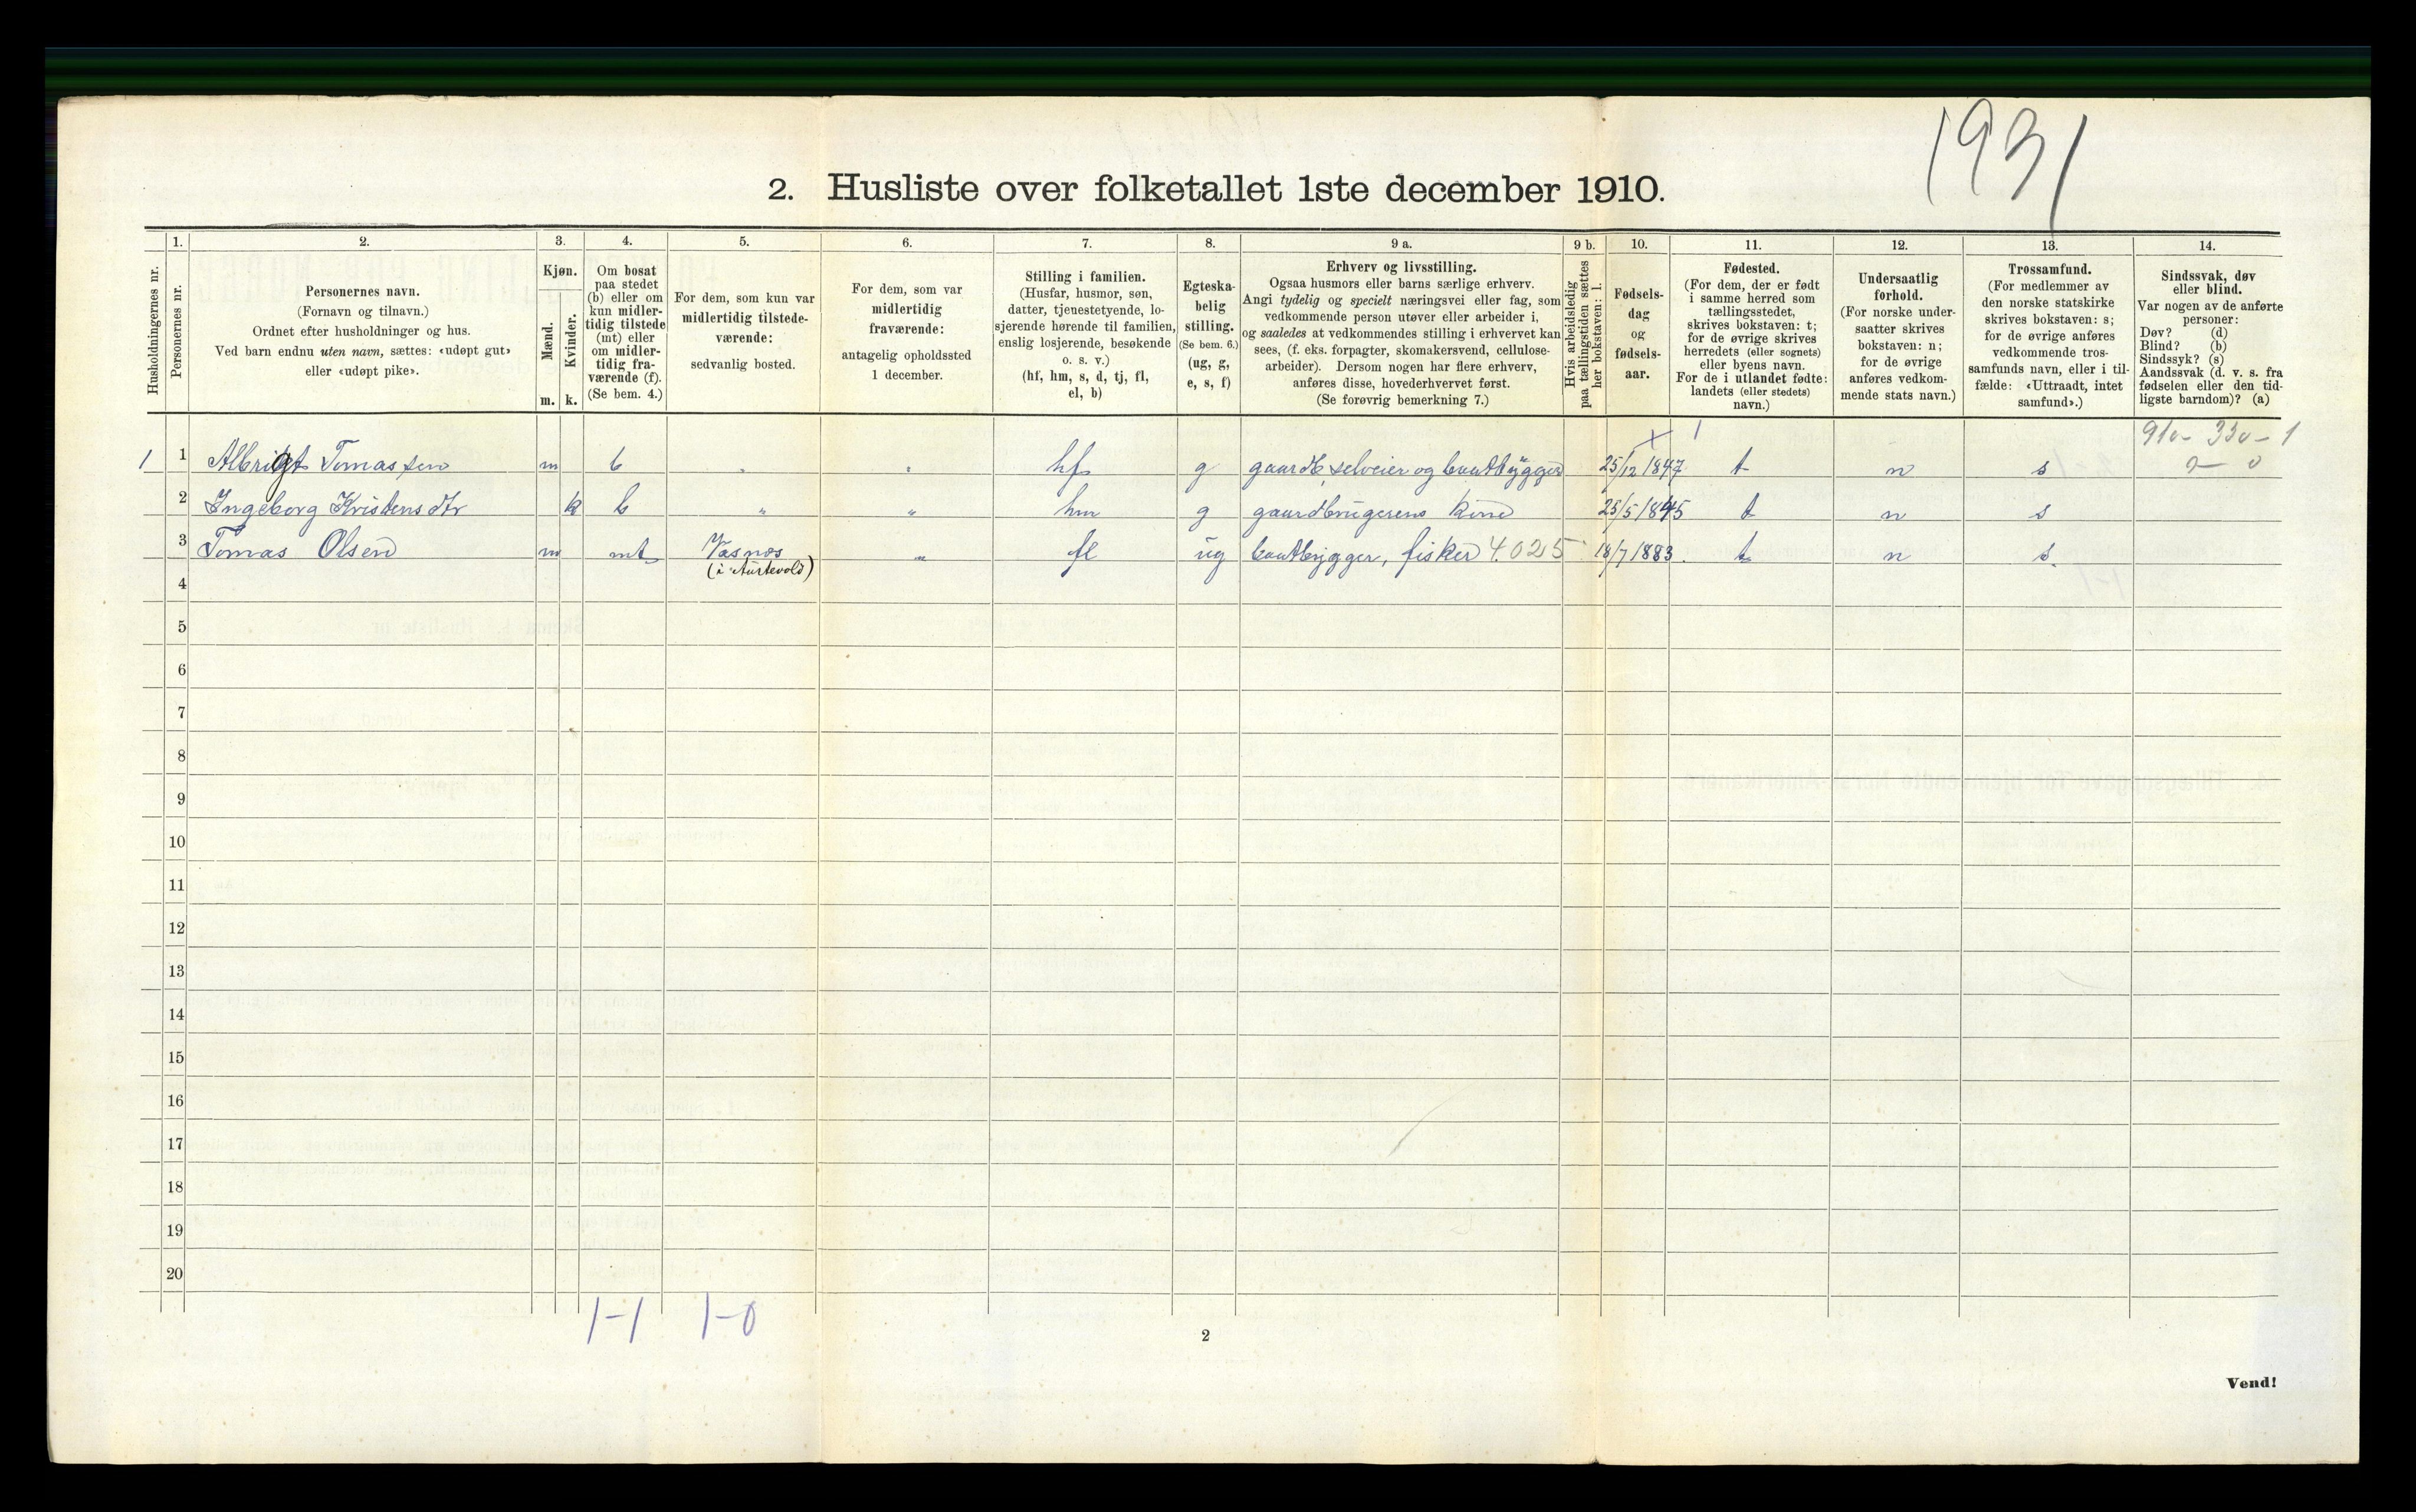 1931
2. Husliste over folketallet 1ste december 1910.
Husholdningernes nr.
1.
Personernes nr.
2.
Personernes navn.
(Fornavn og tilnavn.)
Ordnet efter husholdninger og hus.
Ved barn endnu uten navn, sættes: «udøpt gut»
eller «udøpt pike».
3.
Kjøn.
Mænd.
Kvinder.
m. k.
4.
Om bosat
paa stedet
(b) eller om
kun midler-
tidig tilstede
(mt) eller
om midler-
tidig fra-
værende (f).
(Se bem. 4.)
5.
For dem, som kun var
midlertidig tilstede-
værende:
sedvanlig bosted.
6.
For dem, som var
midlertidig
fraværende:
antagelig opholdssted
1 december.
7.
Stilling i familien.
(Husfar, husmor, søn,
datter, tjenestetyende, lo-
sjerende hørende til familien,
enslig losjerende, besøkende
o. s. v.)
(hf, hm, s, d, tj, fl,
el, b)
8.
Egteska-
belig
stilling.
(Se bem. 6.)
(ug, g,
e, s, f)
9 a.
Erhverv og livsstilling.
Ogsaa husmors eller barns særlige erhverv.
Angi tydelig og specielt næringsvei eller fag, som
vedkommende person utøver eller arbeider i,
og saaledes at vedkommendes stilling i erhvervet kan
sees, (f. eks. forpagter, skomakersvend, cellulose-
arbeider). Dersom nogen har flere erhverv,
anføres disse, hovederhvervet først.
(Se forøvrig bemerkning 7.)
9 b.
Hvis arbeidsledig
paa tællingstiden sættes
her bokstaven: l.
10.
Fødsels-
dag
og
fødsels-
aar.
11.
Fødested.
(For dem, der er født
i samme herred som
tællingsstedet,
skrives bokstaven: t;
for de øvrige skrives
herredets (eller sognets)
eller byens navn.
For de i utlandet fødte:
landets (eller stedets)
navn.)
12.
Undersaatlig
forhold.
(For norske under-
saatter skrives
bokstaven: n;
for de øvrige
anføres vedkom-
mende stats navn.)
13.
Trossamfund.
(For medlemmer av
den norske statskirke
skrives bokstaven: s;
for de øvrige anføres
vedkommende tros-
samfunds navn, eller i til-
fælde: «Uttraadt, intet
samfund».)
14.
Sindssvak, døv
eller blind.
Var nogen av de anførte
personer:
Døv? (d)
Blind? (b)
Sindssyk? (s)
Aandssvak (d. v. s. fra
fødselen eller den tid-
ligste barndom)? (a)
1 1 Albrigt Tomassen m b " " hf g gaardb., selveier og baatbygger 25/12 1847 t n s
2 Ingeborg Kristensdtr k b " " hm g gaardbrugerens kone 25/5 1845 t n s
3 Tomas Olsen m mt Vasnes " fl ug baatbygger, fisker 4025 18/7 1883 t n s.
4
5
6
7
8
9
10
11
12
13
14
15
16
17
18
19
20
1-1 1-0
2
Vend!